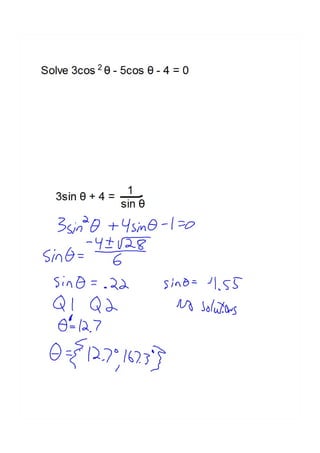 Solve 3cos ² θ - 5cos θ - 4 = 0
3sin θ + 4 = 1 / sin θ
3sin²θ + 4sinθ - 1 = 0
sinθ = (-4 ± √28) / 6
sinθ = .22 sinθ = -1.55
Q1 Q2 No solutions
θ' = 12.7
θ = {12.7°, 167.3°}